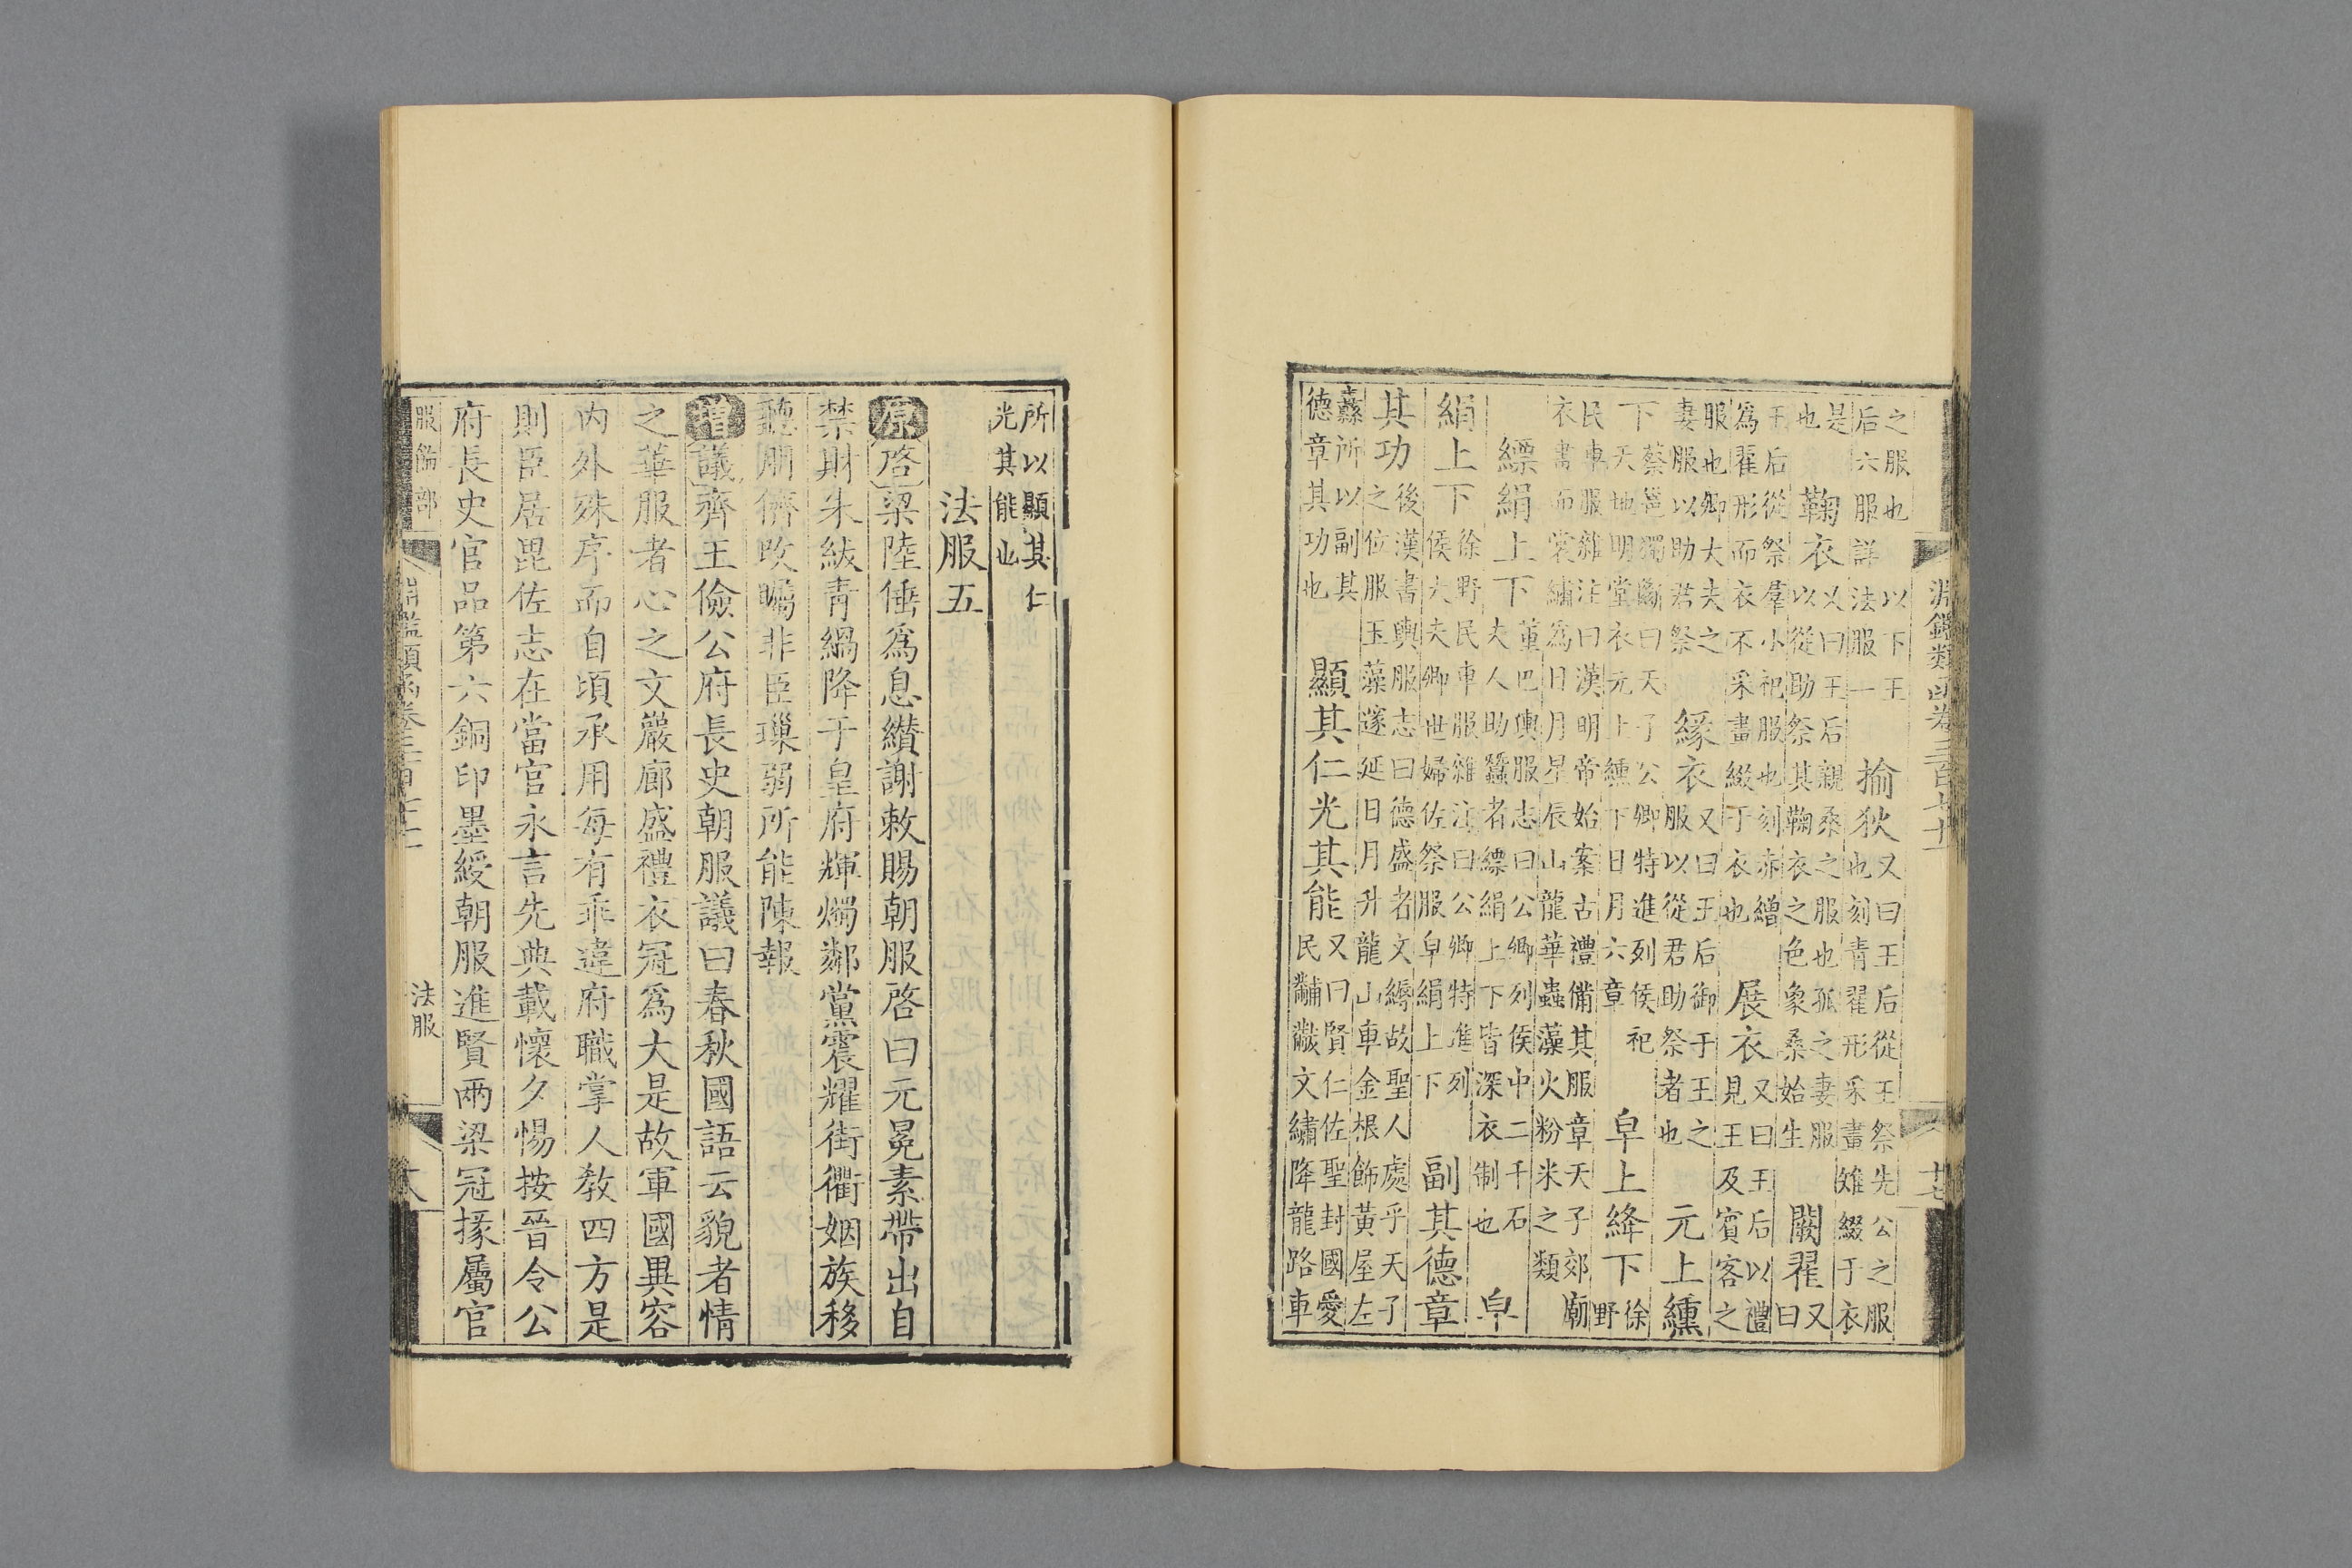 淵鑑類函卷三百七十 十七
之服也以下王
后六服詳法服一
揄狄
又曰王后從王祭先公之服
也刻青翟形采畫雉綴于衣
是
也
鞠衣
又曰王后親桑之服也孤之妻服
以從助祭其鞠衣之色象桑始生
闕翟
又
曰
王后從祭羣小祀服也刻亦繒
為翟形而衣不采畫綴于衣也
展衣
又曰王后以禮
見王及賓客之
服也卿大夫之
妻服以助君祭
緣衣
又曰王后御于王之
服以從君助祭者也
元上纁
下
蔡邕獨斷曰天子公卿特進列侯祀
天地明堂衣元上纁下日月六章
皁上絳下
徐
野
民車服雜注曰漢明帝始案古禮備其服章天子郊廟
衣畫而裳繡為日月星辰山龍華蟲藻火粉米之類
縹絹上下
董巴輿服志曰公卿列侯中二千石
夫人助蠶者縹絹上下皆深衣制也
皁
絹上下
徐野民車服雜注曰公卿特進列
侯大夫卿世婦佐祭服皁絹上下
副其德章
其功
後漢書輿服志曰德盛者文縟故聖人處乎天子
之位服玉藻邃延日月升龍山車金根飾黃屋左
纛所以副其
德章其功也
顯其仁光其能
又曰賢仁佐聖封國愛
民黼黻文繡降龍路車
所以顯其仁
光其能也
法服五
原啓梁陸倕爲息纘謝敕賜朝服啓曰元冕素帶出自
禁財朱紱青綱降于皇府輝燭鄰黨震耀街衢姻族移
聽朋儕改矚非臣璅弱所能陳報
增議齊王儉公府長史朝服議曰春秋國語云貌者情
之華服者心之文巖廊盛禮衣冠爲大是故軍國異容
內外殊序而自頃承用每有乖違府職掌人敎四方是
則臣居毘佐志在當官永言先典載懷夕惕按晉令公
府長史官品第六銅印墨綬朝服進賢兩梁冠掾屬官
服飾部 淵鑑類函卷三百七十 法服